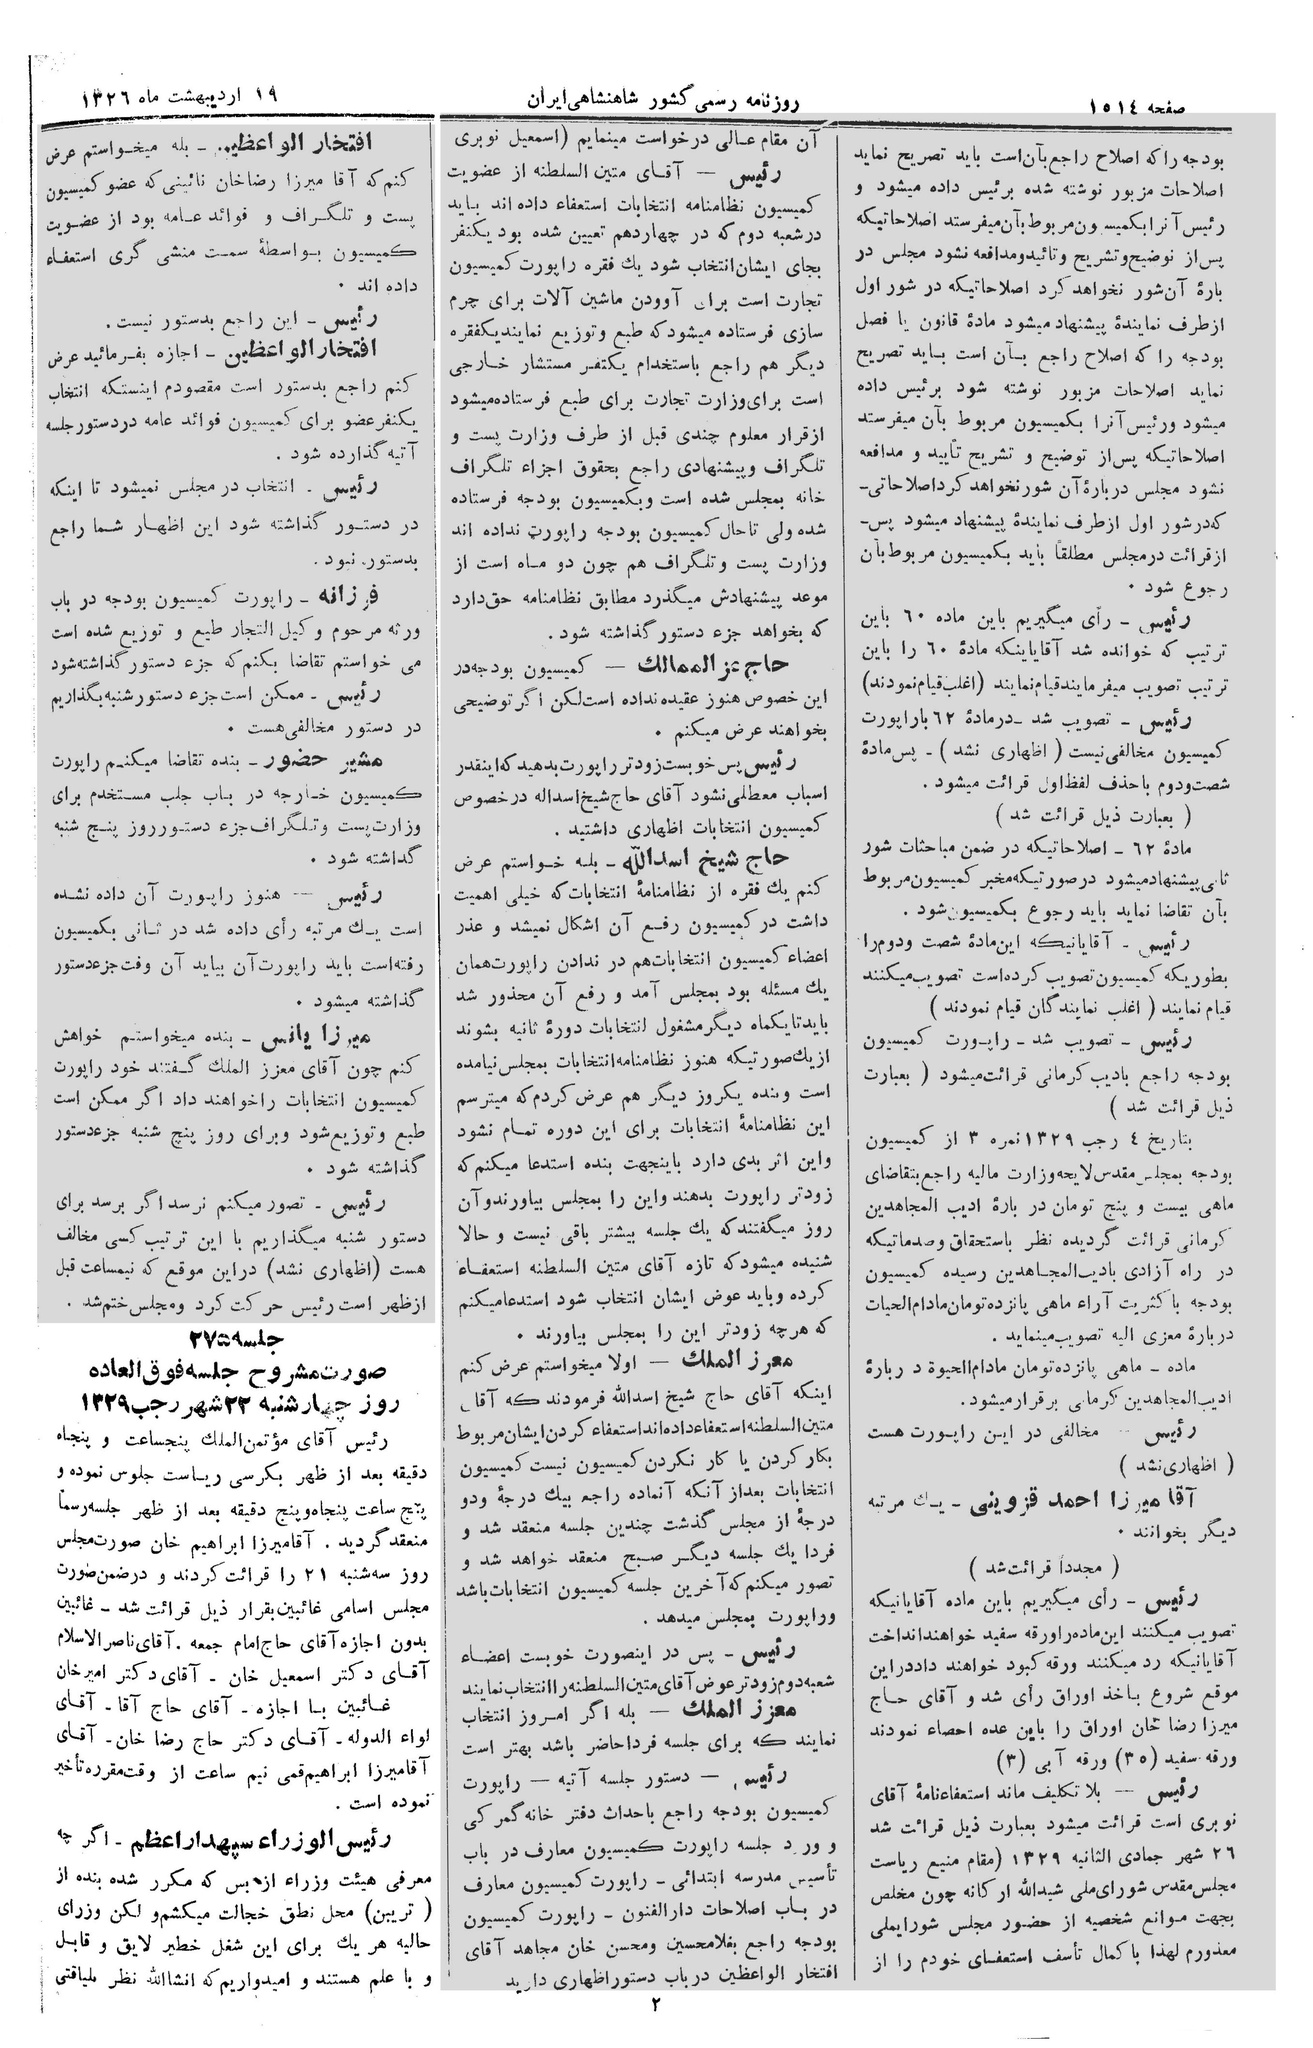 صفحه ۱۵۱۴
روزنامه رسمی کشور شاهنشاهی ایران
۱۹ اردیبهشت ماه ۱۳۲۶
بودجه را که اصلاح راجع بآن است باید تصریح نماید
اصلاحات مزبور نوشته شده برئیس داده میشود و
رئیس آنرا بکمیسون مربوط بآن میفرستد اصلاحاتیکه
پس از توضیح و تشریح و تائید و مدافعه نشود مجلس در
بارهٔ آن شور نخواهد کرد اصلاحاتیکه در شور اول
از طرف نمایندهٔ پیشنهاد میشود مادهٔ قانون یا فصل
بودجه را که اصلاح راجع بآن است باید تصریح
نماید اصلاحات مزبور نوشته شود برئیس داده
میشود و رئیس آنرا بکمیسیون مربوط بآن میفرستد
اصلاحاتیکه پس از توضیح و تشریح تأیید و مدافعه
نشود مجلس دربارهٔ آن شور نخواهد کرد اصلاحاتی-
که در شور اول از طرف نمایندهٔ پیشنهاد میشود پس-
از قرائت در مجلس مطلقاً باید بکمیسیون مربوط بآن
رجوع شود .
رئیس - رأی میگیریم باین ماده ۶۰ باین
ترتیب که خوانده شد آقایاینکه مادهٔ ۶۰ را باین
ترتیب تصویب میفرمایند قیام نمایند (اغلب قیام نمودند)
رئیس - تصویب شد - در مادهٔ ۶۲ با راپورت
کمیسیون مخالفی نیست ( اظهاری نشد ) - پس مادهٔ
شصت و دوم با حذف لفظ اول قرائت میشود .
( بعبارت ذیل قرائت شد )
مادهٔ ۶۲ - اصلاحاتیکه در ضمن مباحثات شور
ثانی پیشنهاد میشود در صورتیکه مخبر کمیسیون مربوط
بآن تقاضا نماید باید رجوع بکمیسیون شود .
رئیس - آقایانیکه این مادهٔ شصت و دوم را
بطوریکه کمیسیون تصویب کرده است تصویب میکنند
قیام نمایند ( اغلب نمایندگان قیام نمودند )
رئیس - تصویب شد - راپورت کمیسیون
بودجه راجع بادیب کرمانی قرائت میشود ( بعبارت
ذیل قرائت شد )
بتاریخ ۴ رجب ۱۳۲۹ نمره ۳ از کمیسیون
بودجه بمجلس مقدس لایحه وزارت مالیه راجع بتقاضای
ماهی بیست و پنج تومان در بارهٔ ادیب المجاهدین
کرمانی قرائت گردیده نظر باستحقاق و صدماتیکه
در راه آزادی بادیب المجاهدین رسیده کمیسیون
بودجه با کثریت آراء ماهی پانزده تومان مادام الحیات
دربارهٔ معزی الیه تصویب مینماید .
ماده - ماهی پانزده تومان مادام الحیوة دربارهٔ
ادیب المجاهدین کرمانی برقرار میشود.
رئیس - مخالفی در این راپورت هست
( اظهاری نشد )
آقا میرزا احمد قزوینی - یك مرتبه
دیگر بخوانند .
( مجدداً قرائت شد )
رئیس - رأی میگیریم باین ماده آقایانیکه
تصویب میکنند این ماده را ورقه سفید خواهند انداخت
آقایانیکه رد میکنند ورقه کبود خواهند داد در این
موقع شروع باخذ اوراق رأی شد و آقای حاج
میرزا رضا خان اوراق را باین عده احصاء نمودند
ورقه سفید (۳۵) ورقه آبی (۳)
رئیس - بلا تکلیف ماند استعفاءنامهٔ آقای
نوبری است قرائت میشود بعبارت ذیل قرائت شد
۲۶ شهر جمادی الثانیه ۱۳۲۹ (مقام منیع ریاست
مجلس مقدس شورای ملی شیدالله ارکانه چون مخلص
بجهت موانع شخصیه از حضور مجلس شورایملی
معذورم لهذا با کمال تأسف استعفای خودم را از
آن مقام عالی درخواست مینمایم (اسمعیل نوبری
رئیس - آقای متین السلطنه از عضویت
کمیسیون نظامنامه انتخابات استعفاء داده اند باید
در شعبه دوم که در چهاردهم تعیین شده بود یکنفر
بجای ایشان انتخاب شود یك فقره راپورت کمیسیون
تجارت است برای آوودن ماشین آلات برای چرم
سازی فرستاده میشود که طبع و توزیع نمایند یکفقره
دیگر هم راجع باستخدام یکنفر مستشار خارجی
است برای وزارت تجارت برای طبع فرستاده میشود
از قرار معلوم چندی قبل از طرف وزارت پست و
تلگراف و پیشنهادی راجع بحقوق اجزاء تلگراف
خانه بمجلس شده است و بکمیسیون بودجه فرستاده
شده ولی تا حال کمیسیون بودجه راپورت نداده اند
وزارت پست و تلگراف هم چون دو ماه است از
موعد پیشنهادش میگذرد مطابق نظامنامه حق دارد
که بخواهد جزء دستور گذاشته شود .
حاج عز الممالك - کمیسیون بودجه در
این خصوص هنوز عقیده نداده است لکن اگر توضیحی
بخواهند عرض میکنم .
رئیس پس خوبست زودتر راپورت بدهید که اینقدر
اسباب معطلی نشود آقای حاج شیخ اسداله در خصوص
کمیسیون انتخابات اظهاری داشتید .
حاج شیخ اسدالله - بله خواستم عرض
کنم یك فقره از نظامنامهٔ انتخابات که خیلی اهمیت
داشت در کمیسیون رفع آن اشکال نمیشد و عذر
اعضاء کمیسیون انتخابات هم در ندادن راپورت همان
یك مسئله بود بمجلس آمد و رفع آن محذور شد
باید تا یکماه دیگر مشغول انتخابات دورهٔ ثانیه بشوند
از یك صورتیکه هنوز نظامنامه انتخابات بمجلس نیامده
است و بنده یکروز دیگر هم عرض کردم که میترسم
این نظامنامهٔ انتخابات برای این دوره تمام نشود
و این اثر بدی دارد باینجهت بنده استدعا میکنم که
زودتر راپورت بدهند و این را بمجلس بیاورند و آن
روز میگفتند که یك جلسه بیشتر باقی نیست و حالا
شنیده میشود که تازه آقای متین السلطنه استعفاء
کرده و باید عوض ایشان انتخاب شود استدعا میکنم
که هرچه زودتر این را بمجلس بیاورند .
معزز الملك - اولا میخواستم عرض کنم
اینکه آقای حاج شیخ اسدالله فرمودند که آقای
متین السلطنه استعفاء داده اند استعفاء کردن ایشان مربوط
بکار کردن یا کار نکردن کمیسیون نیست کمیسیون
انتخابات بعد از آنکه آنماده راجع بیك درجهٔ و دو
درجهٔ از مجلس گذشت چندین جلسه منعقد شد و
فردا یك جلسه دیگر صبح منعقد خواهد شد و
تصور میکنم که آخرین جلسه کمیسیون انتخابات باشد
و راپورت بمجلس میدهد .
رئیس - پس در اینصورت خوبست اعضاء
شعبه دوم زودتر عوض آقای متین السلطنه را انتخاب نمایند
معزز الملك - بله اگر امروز انتخاب
نمایند که برای جلسه فردا حاضر باشد بهتر است
رئیس - دستور جلسه آتیه - راپورت
کمیسیون بودجه راجع باحداث دفتر خانه گمرکی
و ورد جلسه راپورت کمیسیون معارف در باب
تأسیس مدرسه ابتدائی - راپورت کمیسیون معارف
در باب اصلاحات دارالفنون - راپورت کمیسیون
بودجه راجع بغلامحسین و محسن خان مجاهد آقای
افتخار الواعظین در باب دستور اظهاری دارید
افتخار الواعظین - بله میخواستم عرض
کنم که آقا میرزا رضاخان نائینی که عضو کمیسیون
پست و تلگراف و فوائد عامه بود از عضویت
کمیسیون بواسطهٔ سمت منشی گری استعفاء
داده اند .
رئیس - این راجع بدستور نیست .
افتخار الواعظین - اجازه بفرمائید عرض
کنم راجع بدستور است مقصودم اینستکه انتخاب
یکنفر عضو برای کمیسیون فوائد عامه در دستور جلسه
آتیه گذارده شود .
رئیس - انتخاب در مجلس نمیشود تا اینکه
در دستور گذاشته شود این اظهار شما راجع
بدستور نبود .
فرزانه - راپورت کمیسیون بودجه در باب
ورثه مرحوم وکیل التجار طبع و توزیع شده است
می خواستم تقاضا بکنم که جزء دستور گذاشته شود
رئیس - ممکن است جزء دستور شنبه بگذاریم
در دستور مخالفی هست .
مشیر حضور - بنده تقاضا میکنم راپورت
کمیسیون خارجه در باب جلب مستخدم برای
وزارت پست و تلگراف جزء دستور روز پنج شنبه
گذاشته شود .
رئیس - هنوز راپورت آن داده نشده
است یك مرتبه رأی داده شد در ثانی بکمیسیون
رفته است باید راپورت آن بیاید آن وقت جزء دستور
گذاشته میشود .
میرزا یانس - بنده میخواستم خواهش
کنم چون آقای معزز الملك گفتند خود راپورت
کمیسیون انتخابات را خواهند داد اگر ممکن است
طبع و توزیع شود و برای روز پنج شنبه جزء دستور
گذاشته شود .
رئیس - تصور میکنم نرسد اگر برسد برای
دستور شنبه میگذاریم با این ترتیب کسی مخالف
هست (اظهاری نشد) در این موقع که نیمساعت قبل
از ظهر است رئیس حرکت کرد و مجلس ختم شد .
جلسه ۲۷۵
صورت مشروح جلسه فوق العاده
روز چهارشنبه ۲۲ شهر رجب ۱۳۲۹
رئیس آقای مؤتمن الملك پنجساعت و پنجاه
دقیقه بعد از ظهر بکرسی ریاست جلوس نموده و
پنج ساعت پنجاه و پنج دقیقه بعد از ظهر جلسه رسماً
منعقد گردید . آقا میرزا ابراهیم خان صورت مجلس
روز سه شنبه ۲۱ را قرائت کردند و در ضمن صورت
مجلس اسامی غائبین بقرار ذیل قرائت شد - غائبین
بدون اجازه آقای حاج امام جمعه . آقای ناصر الاسلام
آقای دکتر اسمعیل خان - آقای دکتر امیر خان
غائبین با اجازه - آقای حاج آقا - آقای
لواء الدوله - آقای دکتر حاج رضا خان - آقای
آقا میرزا ابراهیم قمی نیم ساعت از وقت مقرره تأخیر
نموده است .
رئیس الوزراء سپهدار اعظم - اگر چه
معرفی هیئت وزراء از بس که مکرر شده بنده از
( تریبن ) محل نطق خجالت میکشم و لکن وزرای
حالیه هر یك برای این شغل خطیر لایق و قابل
و با علم هستند و امیدواریم که انشاالله نظر بلیاقتی
۲